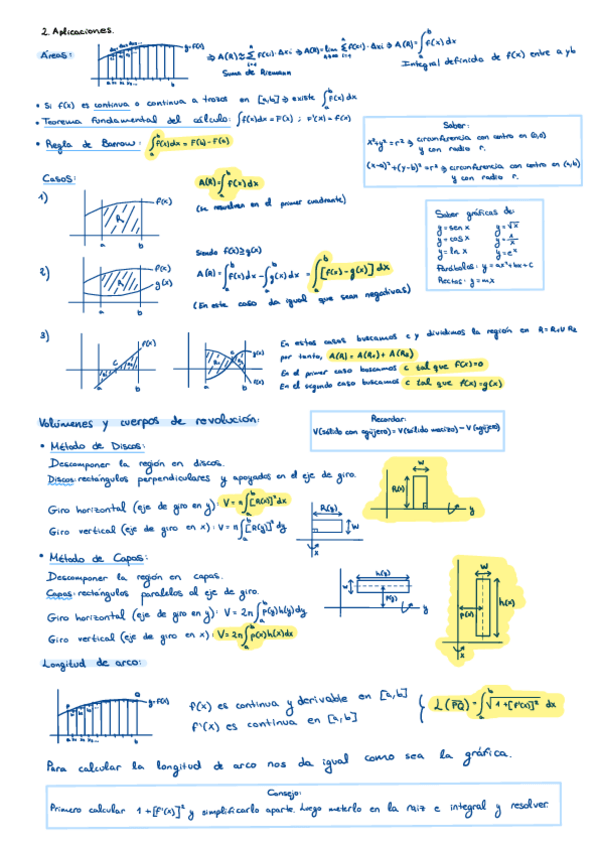 2. Aplicaciones.
Áreas:
y=f(x)
⇒ A(R) ≈ Σ f(xi)·Δxi ⇒ A(R)= lim Σ f(xi)·Δxi ⇒ A(R)= ∫ₐᵇ f(x)dx
Suma de Riemann
Integral definida de f(x) entre a y b
• Si f(x) es continua o continua a trozos en [a,b] ⇒ existe ∫ₐᵇ f(x)dx
• Teorema fundamental del cálculo: ∫f(x)dx = F(x) ; F'(x) = f(x)
• Regla de Barrow: ∫ₐᵇ f(x)dx = F(b) - F(a)
Saber:
x²+y² = r² ⇒ circunferencia con centro en (0,0)
y con radio r.
(x-a)²+(y-b)² = r² ⇒ circunferencia con centro en (a,b)
y con radio r.
Casos:
1)
f(x)
R
a b
A(R)= ∫ₐᵇ f(x)dx
(se resuelven en el primer cuadrante)
Saber gráficas de:
y = sen x y = √x
y = cos x y = 1/x
y = ln x y = eˣ
Parábolas: y = ax²+bx+c
Rectas: y = mx
2)
f(x)
g(x)
R
a b
siendo f(x) ≥ g(x)
A(R) = ∫ₐᵇ f(x)dx - ∫ₐᵇ g(x)dx = ∫ₐᵇ [f(x) - g(x)] dx
(En este caso da igual que sean negativas)
3)
f(x)
c
a b
g(x)
f(x)
a b
En estos casos buscamos c y dividimos la región en R = R₁ ∪ R₂
por tanto, A(R) = A(R₁) + A(R₂)
En el primer caso buscamos c tal que f(x)=0
En el segundo caso buscamos c tal que f(x)=g(x)
Volúmenes y cuerpos de revolución:
Recordar:
V(sólido con agujero) = V(sólido macizo) - V(agujero)
• Método de Discos:
Descomponer la región en discos.
Discos: rectángulos perpendiculares y apoyados en el eje de giro.
Giro horizontal (eje de giro en y): V = π∫ₐᵇ [R(x)]² dx
Giro vertical (eje de giro en x): V = π∫ₐᵇ [R(y)]² dy
R(y)
W
x
W
R(x)
y
• Método de Capas:
Descomponer la región en capas.
Capas: rectángulos paralelos al eje de giro.
Giro horizontal (eje de giro en y): V = 2π∫ₐᵇ p(y)h(y)dy
Giro vertical (eje de giro en x): V = 2π∫ₐᵇ p(x)h(x)dx
h(y)
w
p(y)
y
W
p(x)
h(x)
x
Longitud de arco:
P
Q
y=f(x)
f(x) es continua y derivable en [a,b]
f'(x) es continua en [a,b]
L(PQ) = ∫ₐᵇ √1+[f'(x)]² dx
Para calcular la longitud de arco nos da igual como sea la gráfica.
Consejo:
Primero calcular 1+[f'(x)]² y simplificarlo aparte. Luego meterlo en la raiz e integral y resolver.